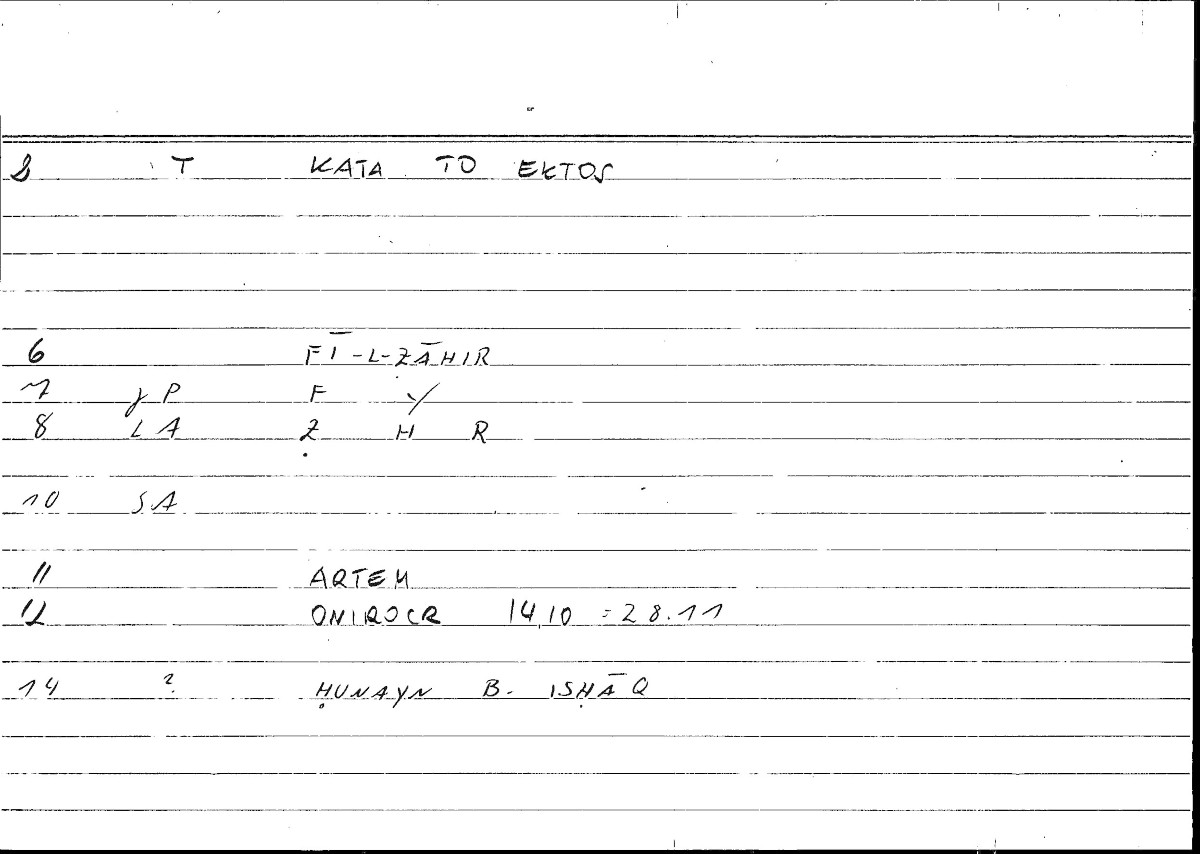 8 T KATA TO EKTOS
6 FĪ-L-ẒĀHIR
7 JP F Y
8 LA Ẓ H R
10 SA
11 ARTEM
12 ONIROCR 14,10 = 28.11
14 ? ḤUNAYN B. ISḤĀQ